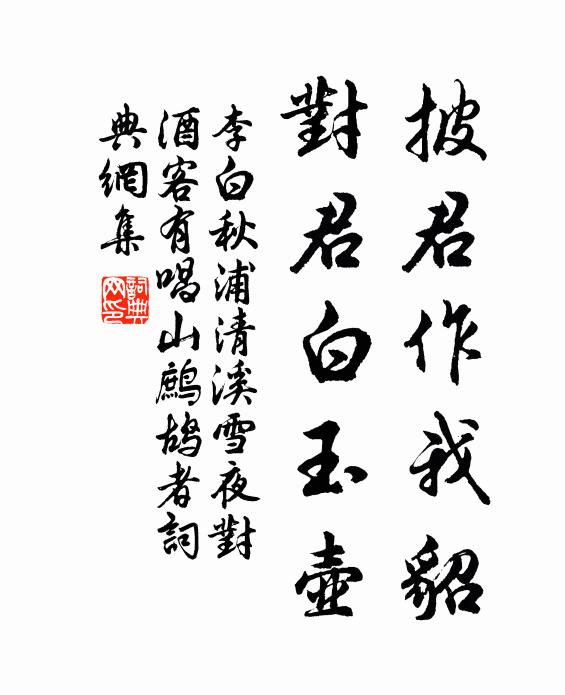 披君作我貂
對君白玉壺
李白秋浦清溪雪夜對
酒客有唱山鷓鴣者詞
典網集
詞典網印